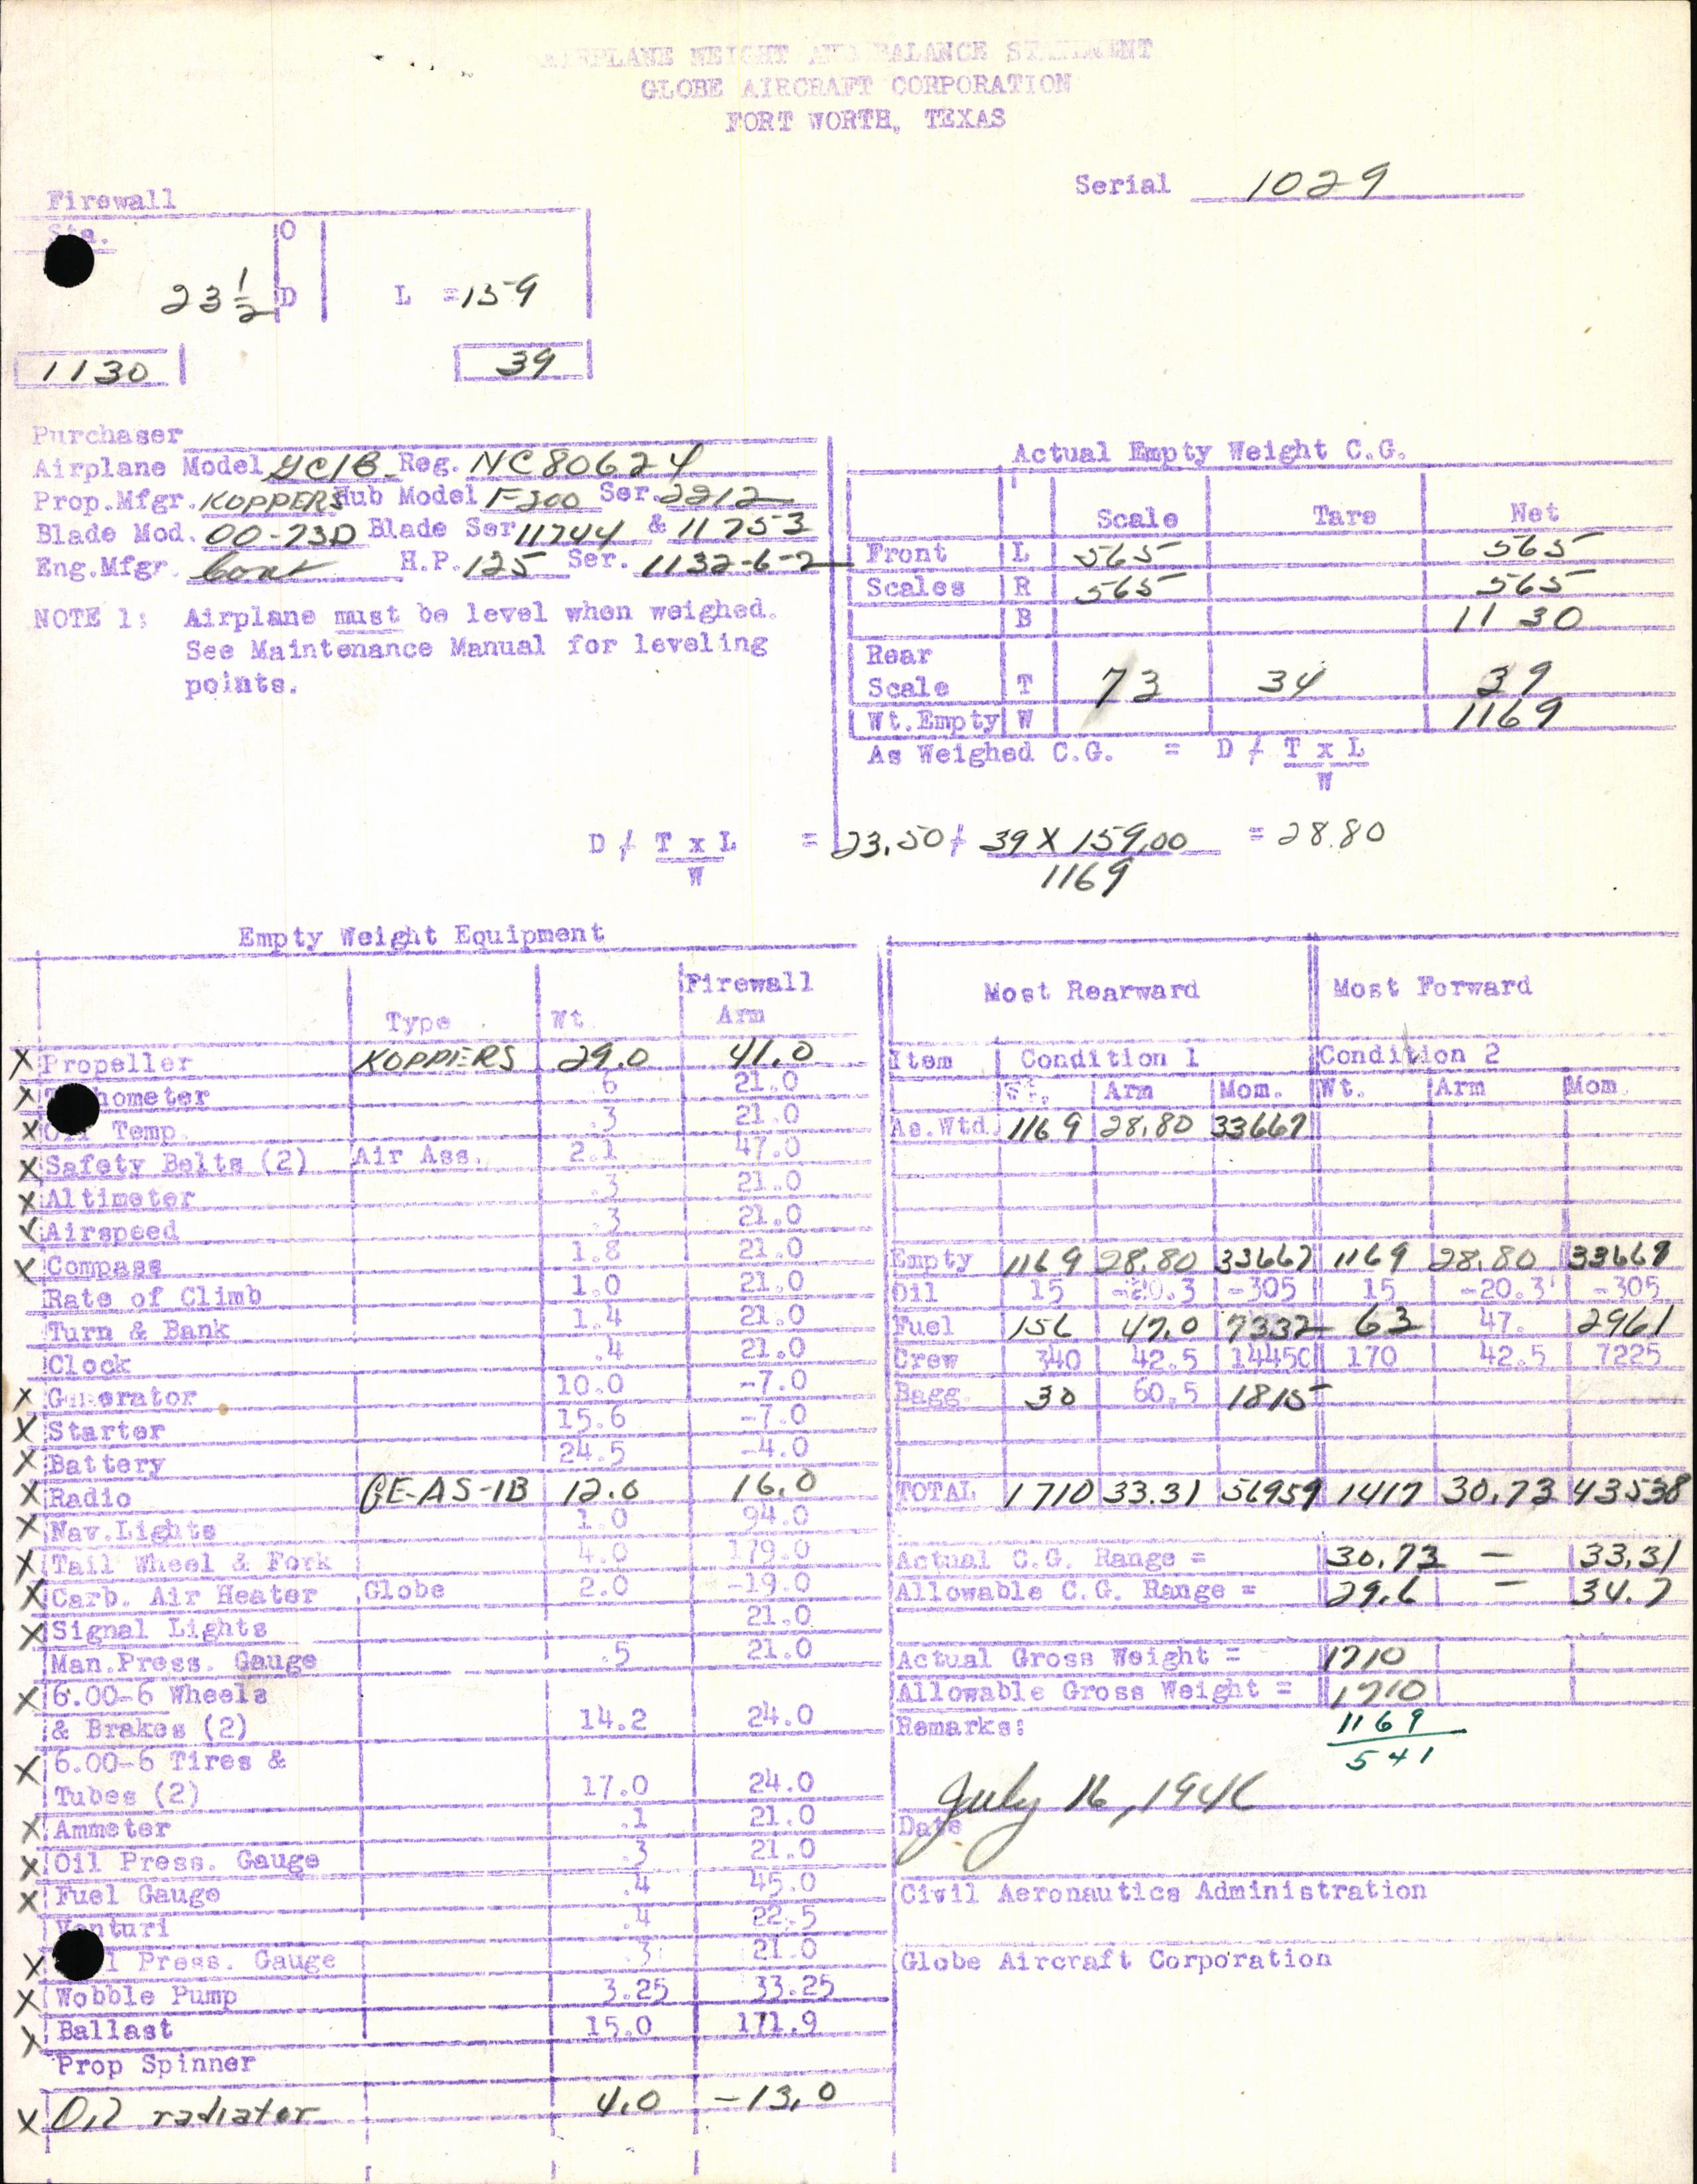 AIRPLANE WEIGHT AND BALANCE STATEMENT
GLOBE AIRCRAFT CORPORATION
FORT WORTH, TEXAS
Serial 1029
Firewall
Sta.
O
23 1/2 D L = 159
1130 39
Purchaser
Airplane Model GC1B Reg. NC80624
Prop.Mfgr. KOPPERS Hub Model F200 Ser. 2212
Blade Mod. 00-73D Blade Ser 11744 & 11753
Eng.Mfgr. Cont H.P. 125 Ser. 1132-6-2
NOTE 1: Airplane must be level when weighed.
See Maintenance Manual for leveling
points.
Actual Empty Weight C.G.
Scale Tare Net
Front L 565 565
Scales R 565 565
B 1130
Rear
Scale T 73 34 39
Wt.Empty W 1169
As Weighed C.G. = D + T x L
W
D + T x L = 23.50 + 39 X 159.00 = 28.80
W 1169
Empty Weight Equipment
Type Wt. Firewall Arm
X Propeller KOPPERS 29.0 41.0
X meter .6 21.0
X Oil Temp. .3 21.0
X Safety Belts (2) Air Ass. 2.1 47.0
X Altimeter .3 21.0
X Airspeed .3 21.0
X Compass 1.8 21.0
Rate of Climb 1.0 21.0
Turn & Bank 1.4 21.0
Clock .4 21.0
X Generator 10.0 -7.0
X Starter 15.6 -7.0
X Battery 24.5 -4.0
X Radio GE-AS-1B 12.0 16.0
X Nav.Lights 1.0 94.0
X Tail Wheel & Fork 4.0 179.0
X Carb. Air Heater Globe 2.0 -19.0
X Signal Lights 21.0
Man.Press. Gauge .5 21.0
X 6.00-6 Wheels
& Brakes (2) 14.2 24.0
X 6.00-6 Tires &
Tubes (2) 17.0 24.0
X Ammeter .1 21.0
X Oil Press. Gauge .3 21.0
X Fuel Gauge .4 45.0
Venturi .4 22.5
X Press. Gauge .3 21.0
X Wobble Pump 3.25 33.25
X Ballast 15.0 171.9
Prop Spinner
X Oil radiator 4.0 -13.0
Most Rearward Most Forward
Item Condition 1 Condition 2
Wt. Arm Mom. Wt. Arm Mom.
As.Wtd. 1169 28.80 33667
Empty 1169 28.80 33667 1169 28.80 33667
Oil 15 -20.3 -305 15 -20.3 -305
Fuel 156 47.0 7332 63 47. 2961
Crew 340 42.5 14450 170 42.5 7225
Bagg. 30 60.5 1815
TOTAL 1710 33.31 56959 1417 30.73 43538
Actual C.G. Range = 30.73 — 33.31
Allowable C.G. Range = 29.6 — 34.7
Actual Gross Weight = 1710
Allowable Gross Weight = 1710
Remarks: 1169
541
July 16, 1946
Date
Civil Aeronautics Administration
Globe Aircraft Corporation